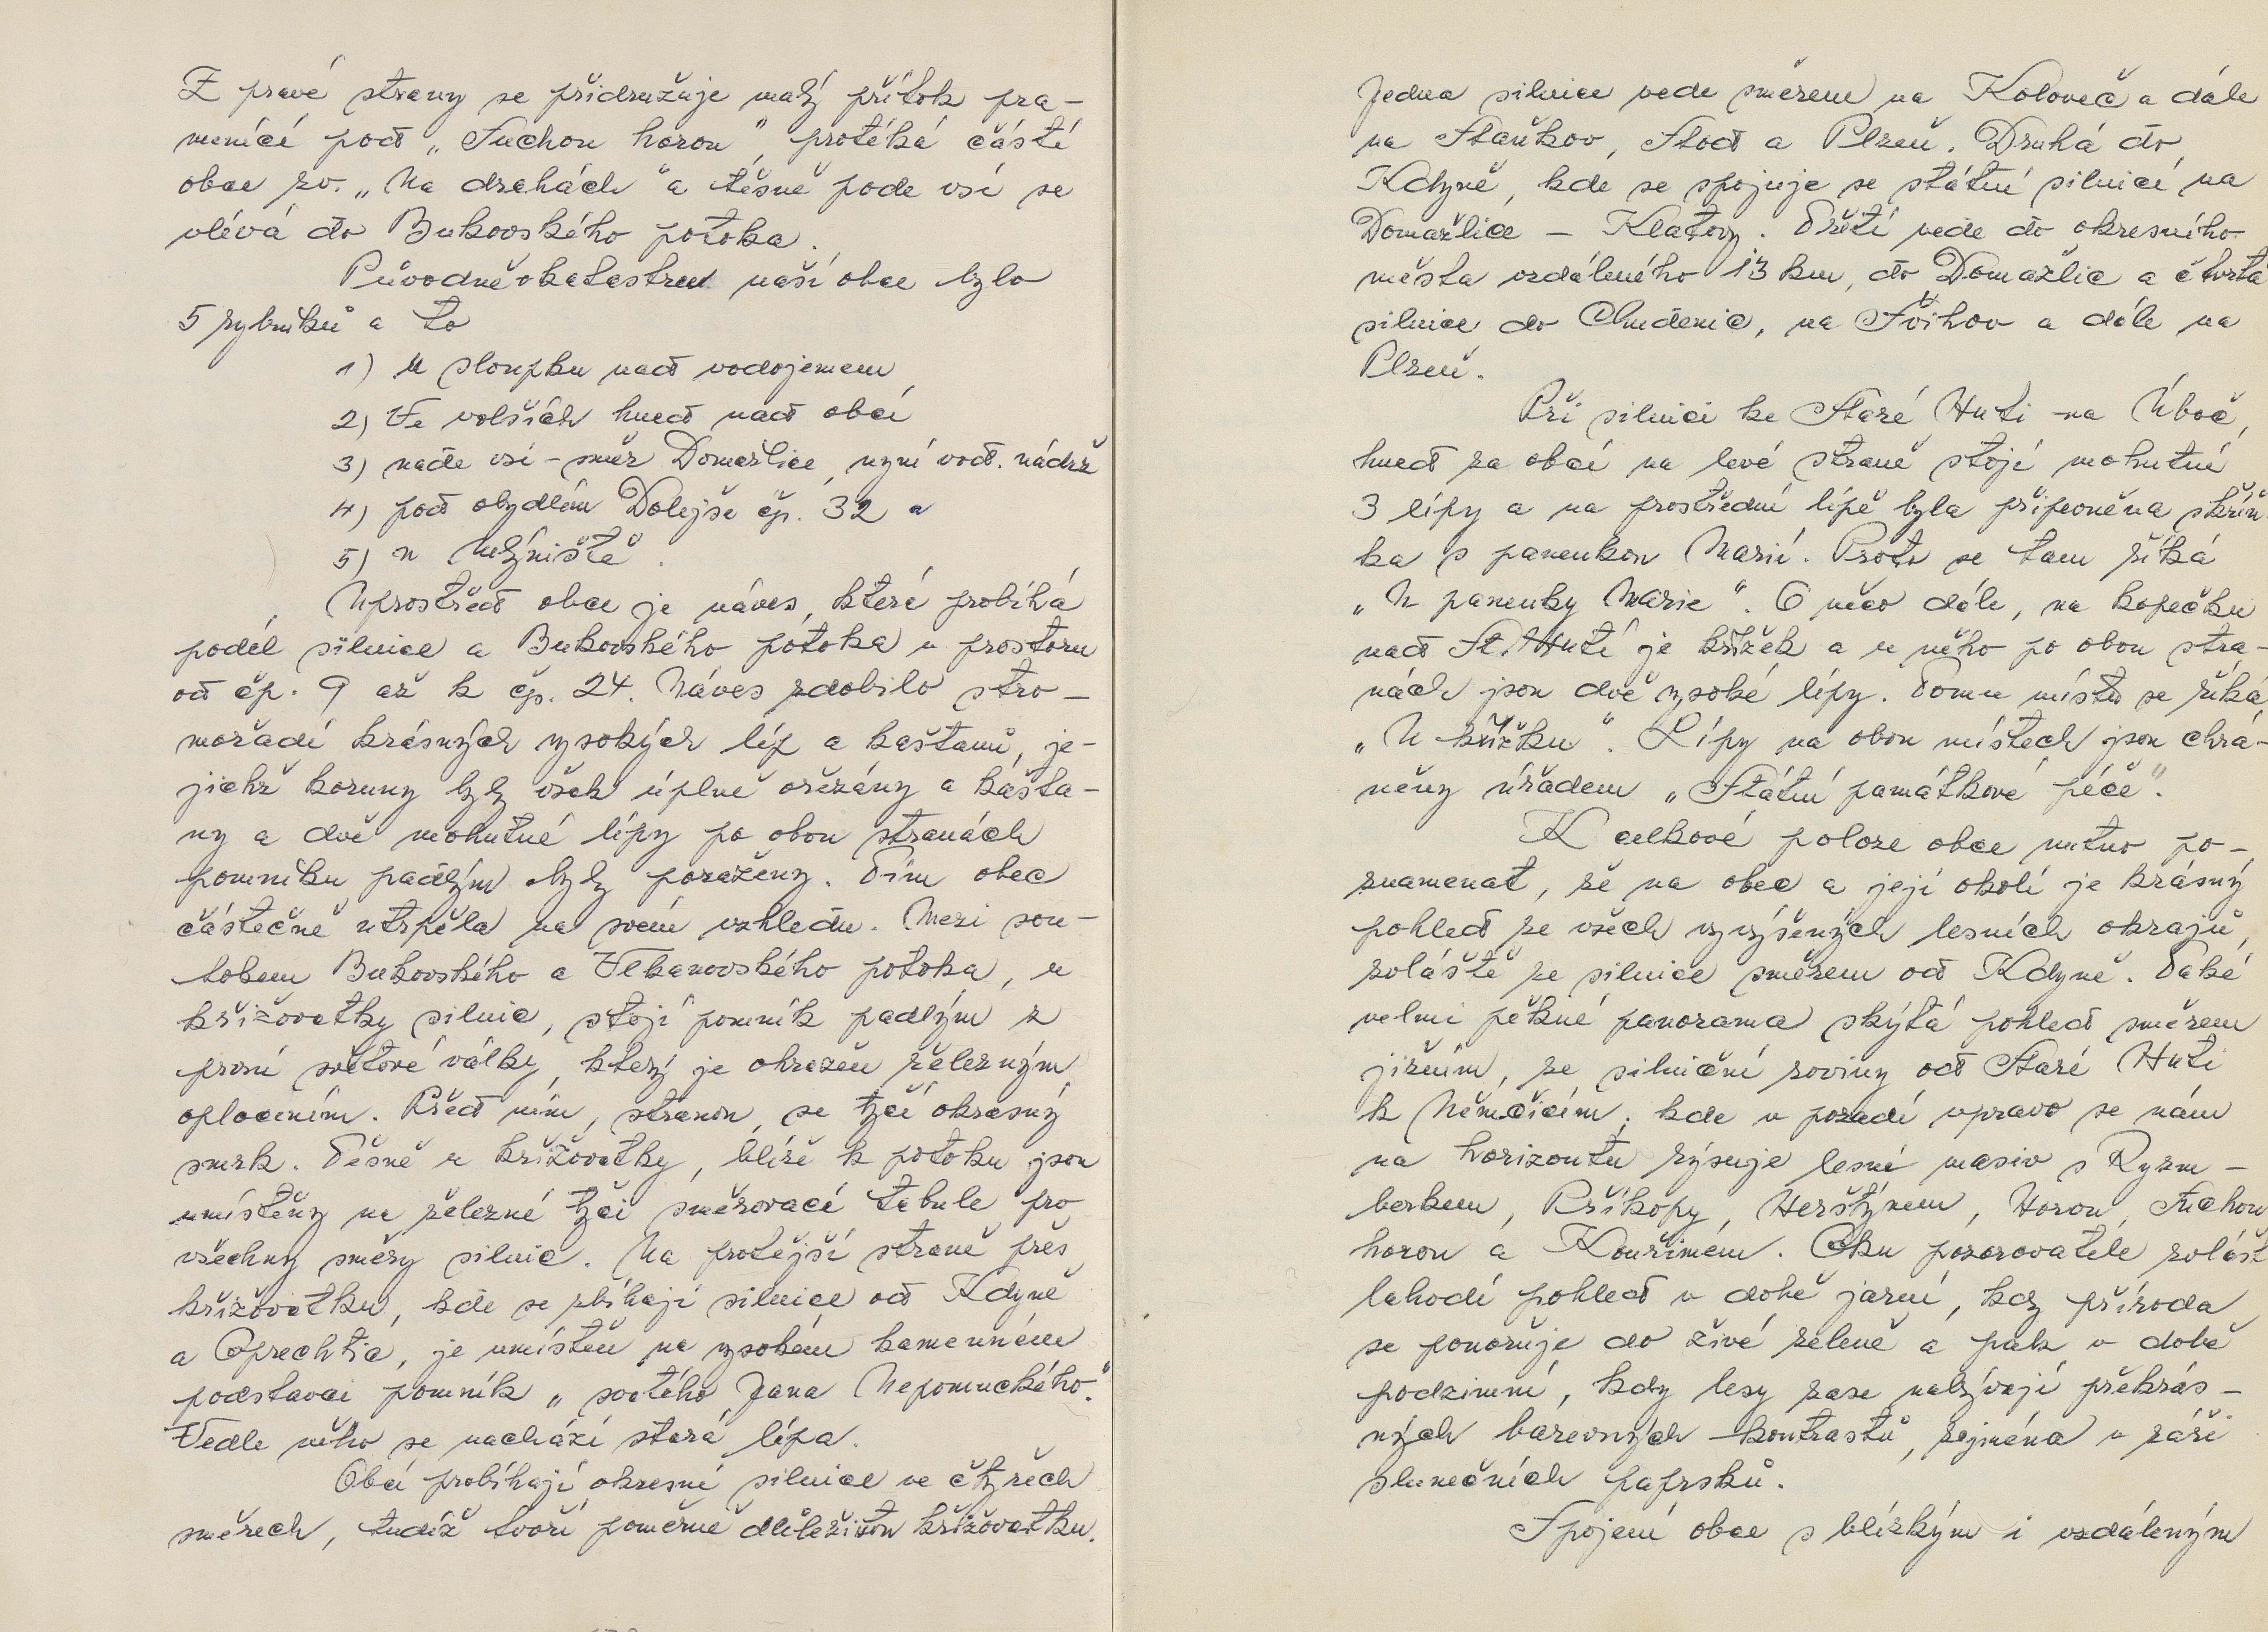 Z pravé strany se přidružuje malý přítok pra-
menící pod „Suchou horou", protéká částí
obce zv. „Na drahách" a těsně pode vsí se
vlévá do Bukovského potoka.
Původně v katastru naší obce bylo
5 rybníků a to
1) U sloupku nad vodojemem,
2) Ve volších hned nad obcí
3) nade vsí - směr Domažlice, nyní vod. nádrž
4) pod obydlím Dolejše čp. 32 a
5) v Mlýniště.
Uprostřed obce je náves, které probíhá
podél silnice a Bukovského potoka v prostoru
od čp. 9 až k čp. 24. Náves zdobilo stro-
mořadí krásných vysokých líp a kaštanů, je-
jichž koruny byly však úplně ořezány a kašta-
ny a dvě mohutné lípy po obou stranách
pomníku padlým byly poraženy. Tím obec
částečně utrpěla na svém vzhledu. Mezi sou-
tokem Bukovského a Vlkanovského potoka, u
křižovatky silnic, stojí pomník padlým z
první světové války, který je ohrazen železným
oplocením. Před ním, stranou, se tyčí okrasný
smrk. Těsně u křižovatky, blíže k potoku jsou
umístěny na železné tyči směrovací tabule pro
všechny směry silnic. Na protější straně přes
křižovatku, kde se sbíhají silnice od Kdyně
a Oprechtic, je umístěn na vysokém kamenném
podstavci pomník „svatého Jana Nepomuckého."
Vedle něho se nachází stará lípa.
Obcí probíhají okresní silnice ve čtyřech
směrech, tudíž tvoří poměrně důležitou křižovatku.
Jedna silnice vede směrem na Koloveč a dále
na Staňkov, Stod a Plzeň. Druhá do
Kdyně, kde se spojuje se státní silnicí na
Domažlice - Klatovy. Třetí vede do okresního
města vzdáleného 13 km, do Domažlic a čtvrtá
silnice do Chudenic, na Švihov a dále na
Plzeň.
Při silnici ke Staré Huti na Úboč,
hned za obcí na levé straně stojí mohutné
3 lípy a na prostřední lípě byla připevněna skřín-
ka s panenkou Marií. Proto se tam říká
„U panenky Marie". O něco dále, na kopečku
nad St. Hutí je křížek a u něho po obou stra-
nách jsou dvě vysoké lípy. Tomu místu se říká
„U křížku". Lípy na obou místech jsou chrá-
něny úřadem „Státní památkové péče".
K celkové poloze obce nutno po-
znamenat, že na obec a její okolí je krásný
pohled ze všech vyvýšených lesních okrajů,
zvláště ze silnice směrem od Kdyně. Také
velmi pěkné panorama skýtá pohled směrem
jižním, ze silniční roviny od Staré Huti
k Němčicím, kde v pozadí vpravo se nám
na horizontu rýsuje lesní masiv s Ryzm-
berkem, Příkopy, Herštýnem, Horou, Suchou
horou a Kouřimem. Oku pozorovatele zvlášť
lahodí pohled v době jarní, kdy příroda
se ponořuje do živé zeleně a pak v době
podzimní, kdy lesy zase nabývají překrás-
ných barevných kontrastů, zejména v záři
slunečních paprsků.
Spojení obce s blízkým i vzdáleným